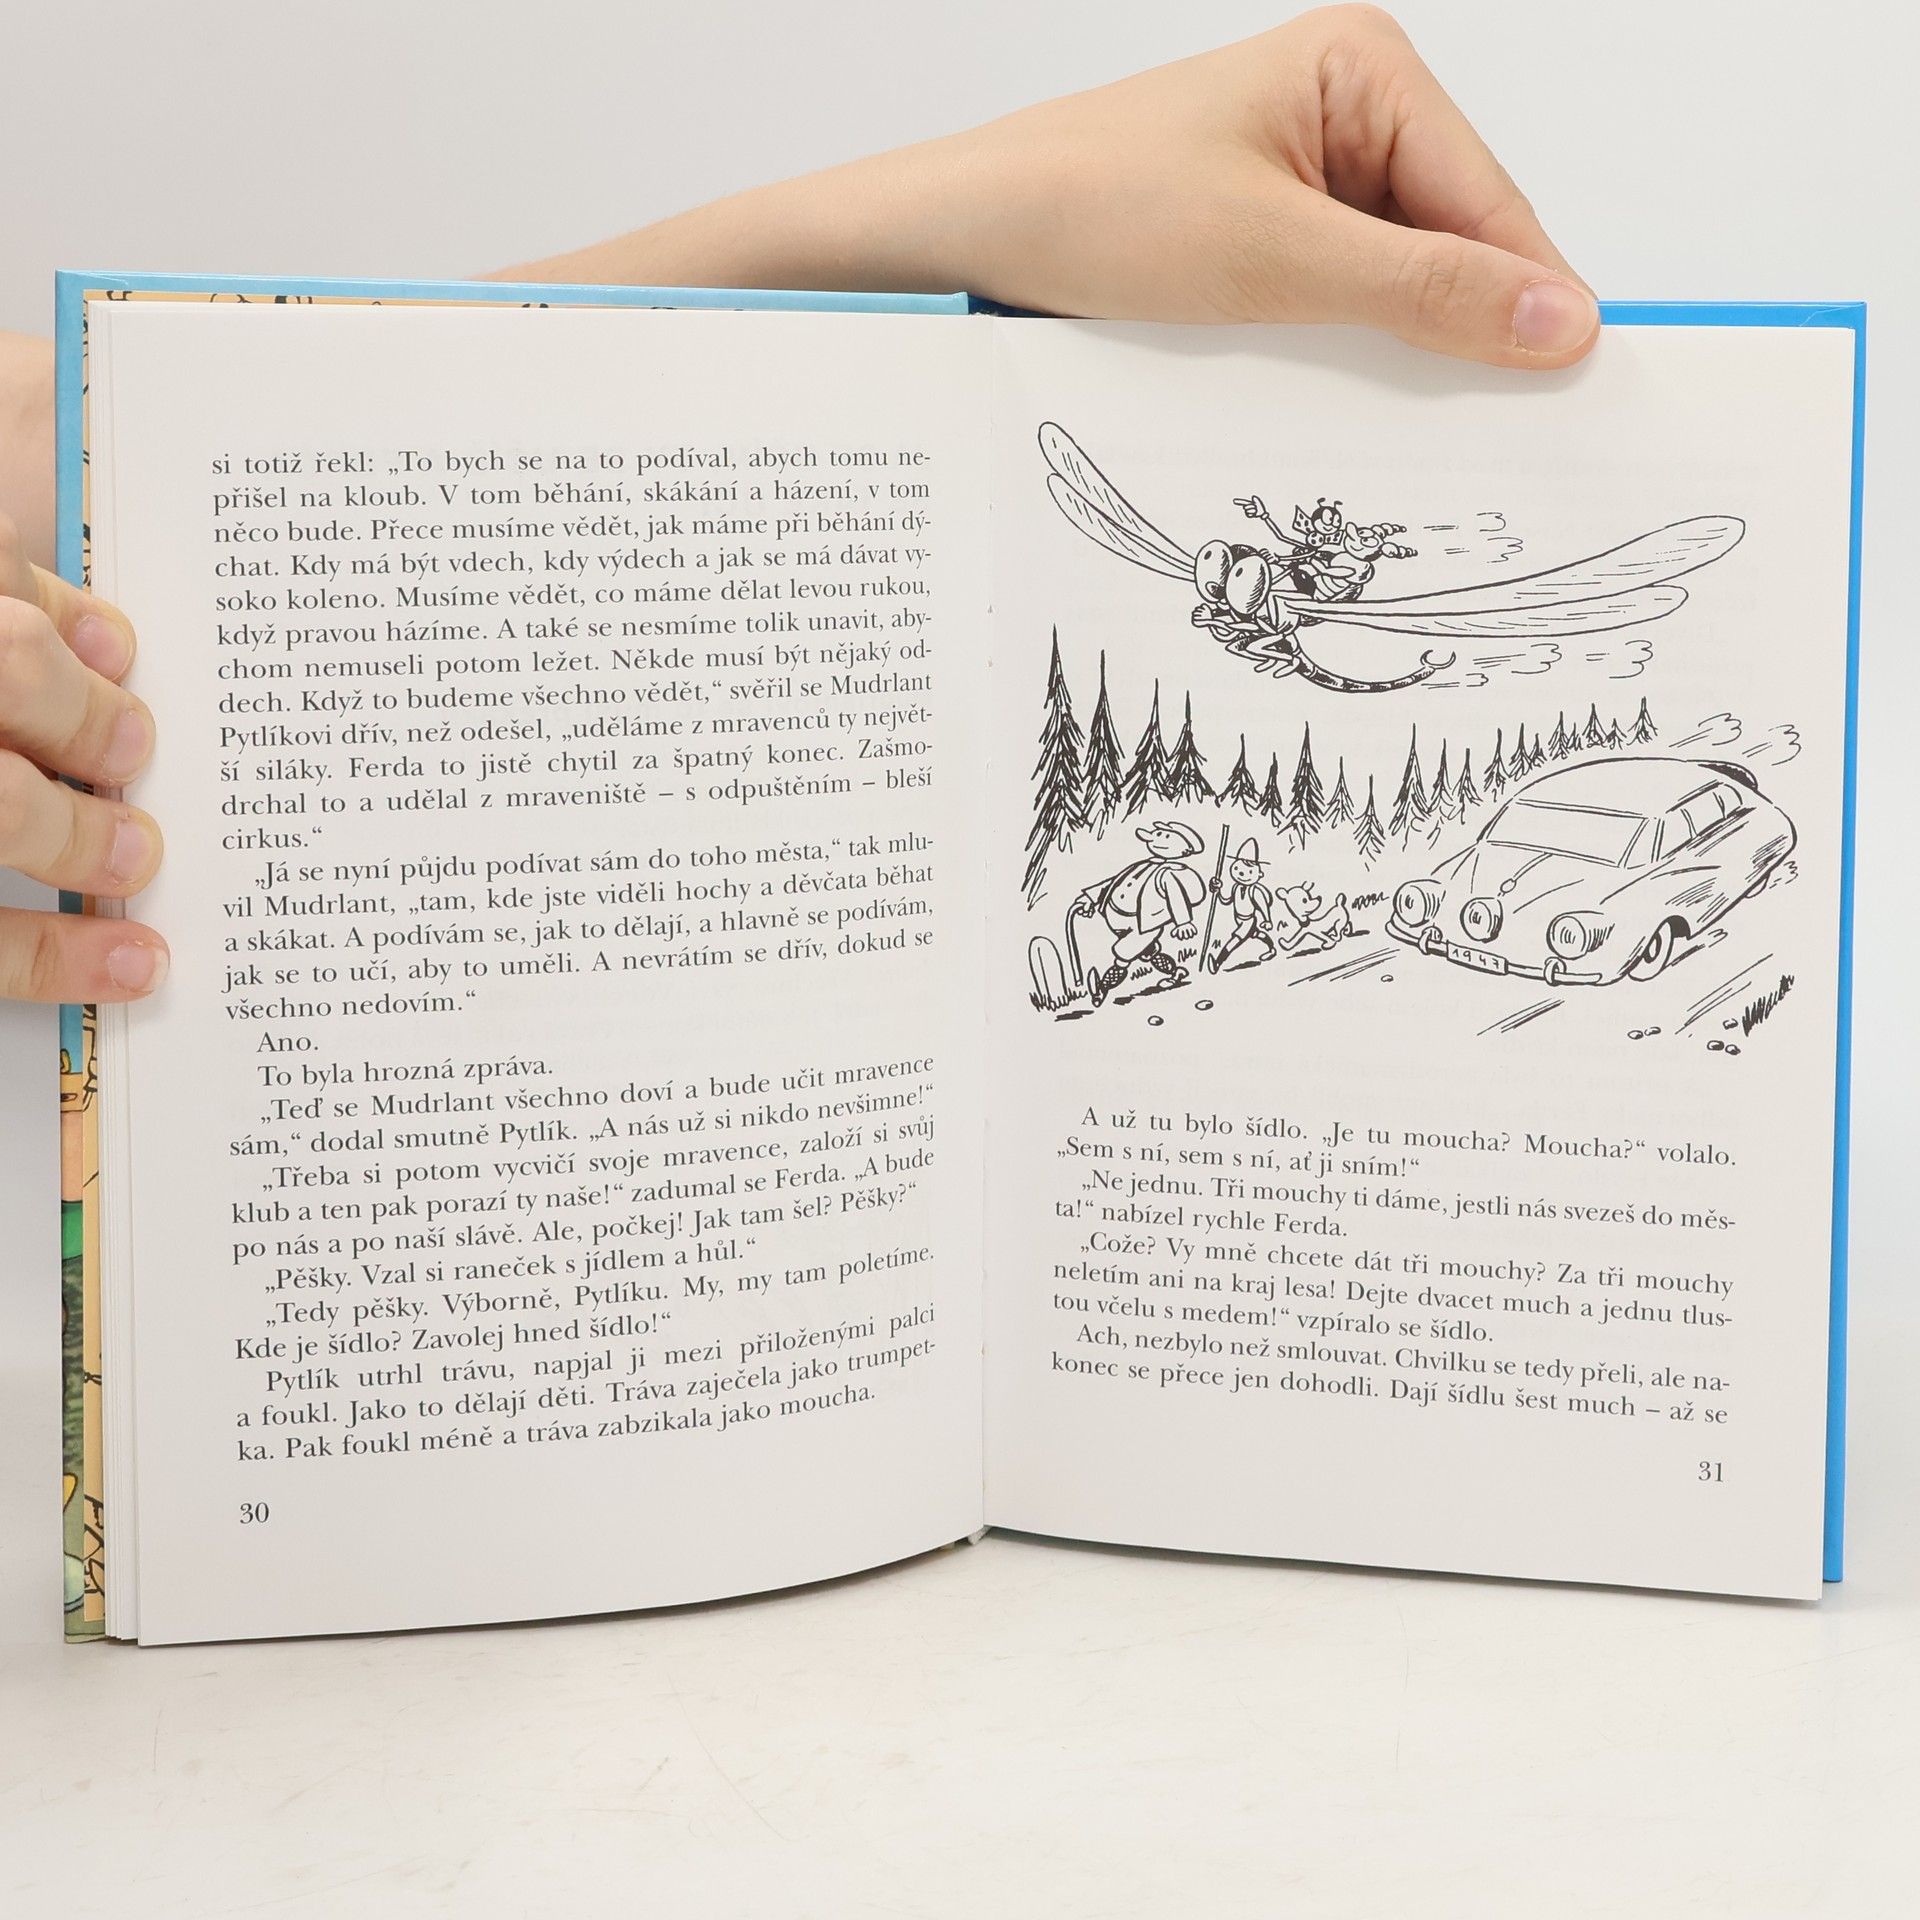 si totiž řekl: „To bych se na to podíval, abych tomu ne-
přišel na kloub. V tom běhání, skákání a házení, v tom
něco bude. Přece musíme vědět, jak máme při běhání dý-
chat. Kdy má být vdech, kdy výdech a jak se má dávat vy-
soko koleno. Musíme vědět, co máme dělat levou rukou,
když pravou házíme. A také se nesmíme tolik unavit, aby-
chom nemuseli potom ležet. Někde musí být nějaký od-
dech. Když to budeme všechno vědět,“ svěřil se Mudrlant
Pytlíkovi dřív, než odešel, „uděláme z mravenců ty největ-
ší siláky. Ferda to jistě chytil za špatný konec. Zašmo-
drchal to a udělal z mraveniště – s odpuštěním – bleší
cirkus.“
„Já se nyní půjdu podívat sám do toho města,“ tak mlu-
vil Mudrlant, „tam, kde jste viděli hochy a děvčata běhat
a skákat. A podívám se, jak to dělají, a hlavně se podívám,
jak se to učí, aby to uměli. A nevrátím se dřív, dokud se
všechno nedovím.“
Ano.
To byla hrozná zpráva.
„Teď se Mudrlant všechno doví a bude učit mravence
sám,“ dodal smutně Pytlík. „A nás už si nikdo nevšimne!“
„Třeba si potom vycvičí svoje mravence, založí si svůj
klub a ten pak porazí ty naše!“ zadumal se Ferda. „A bude
po nás a po naší slávě. Ale, počkej! Jak tam šel? Pěšky?“
„Pěšky. Vzal si raneček s jídlem a hůl.“
„Tedy pěšky. Výborně, Pytlíku. My, my tam poletíme.
Kde je šídlo? Zavolej hned šídlo!“
Pytlík utrhl trávu, napjal ji mezi přiloženými palci
a foukl. Jako to dělají děti. Tráva zaječela jako trumpet-
ka. Pak foukl méně a tráva zabzikala jako moucha.
30
1947
A už tu bylo šídlo. „Je tu moucha? Moucha?“ volalo.
„Sem s ní, sem s ní, ať ji sním!“
„Ne jednu. Tři mouchy ti dáme, jestli nás svezeš do měs-
ta!“ nabízel rychle Ferda.
„Cože? Vy mně chcete dát tři mouchy? Za tři mouchy
neletím ani na kraj lesa! Dejte dvacet much a jednu tlus-
tou včelu s medem!“ vzpíralo se šídlo.
Ach, nezbylo než smlouvat. Chvilku se tedy přeli, ale na-
konec se přece jen dohodli. Dají šídlu šest much – až se
31